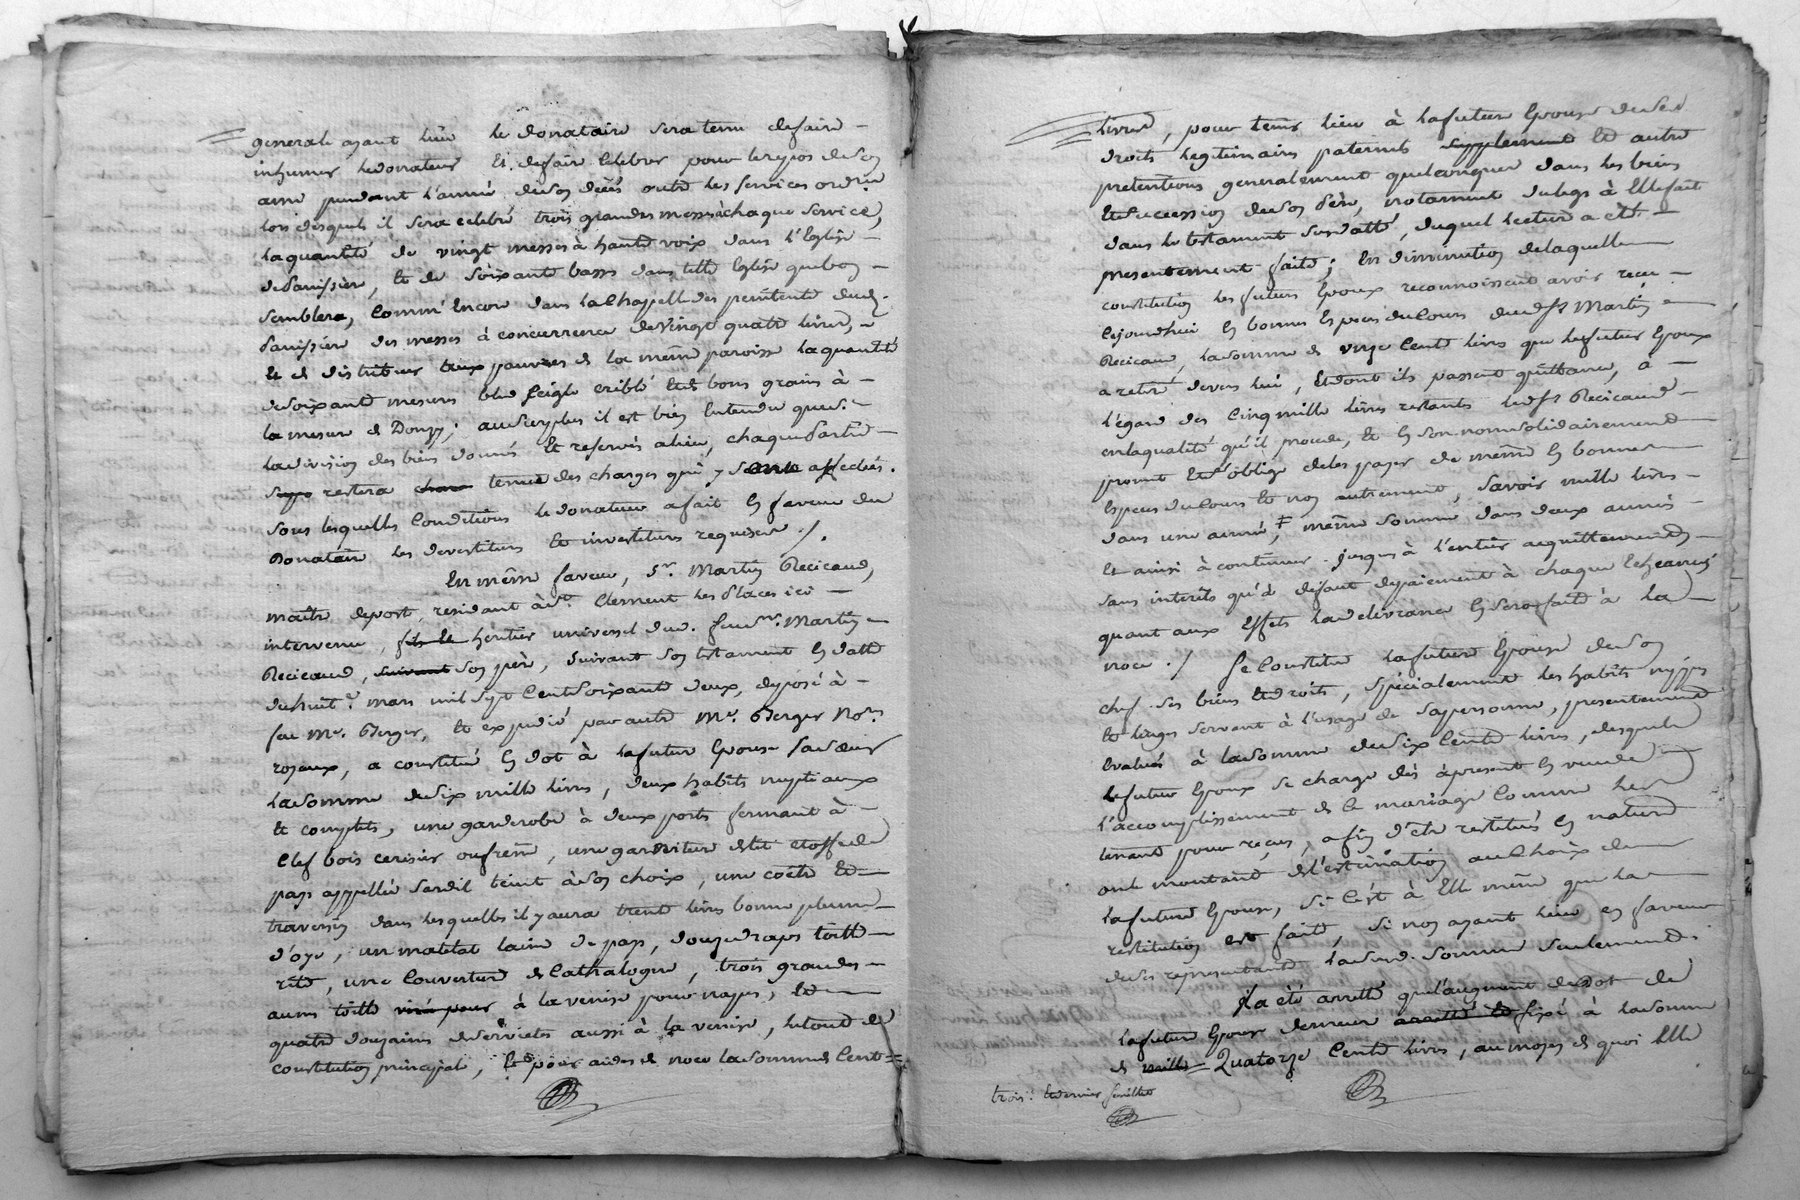 generale ayant lieu le donataire sera tenu de faire
inhumer le donateur et de faire celebrer pour le repos de son
ame pendant l'année de son décés outre les services ordin.res
lors desquels il sera celebré trois grandes messes à chaque service,
la quantité de vingt messes à haute voix dans l'Eglise
de Panissiere, et de soixante basses dans telle Eglise que bon
semblera, comm'encore dans la Chapelle des penitents dud.
Panissiere des messes à concurrence de vingt quatre livres,
et de distribuer aux pauvres de la même paroisse la quantité
de soixante mesures bled seigle criblé et de bons grains à
la mesure de Donzy; au surplus il est bien entendu que si
la division des biens donnés et reservés a lieu, chaque partie
restera tenue des charges qui y sont affectées.
sous lesquelles conditions le donateur a fait en faveur du
Donataire les devestitures et investitures requises ./.
En même faveur, Sr. Martin Recicaud,
maitre de post, residant à St. Clement les Places ici
intervenu, heritier universel dud. feu Sr. Martin
Recicaud, son père, suivant son testament en datte
du huit mars mil sept cent soixante deux, deposé à
feu Me. Berger, et expedié par autre Me. Berger Nore.
royaux, a constitué en dot à la future Epouse sa sœur
la somme de six mille livres, deux habits nuptiaux
et complets, une garderobe à deux portes fermant à
clef bois cerisier ou frene, une garniture de lit etoffe de
pays appellée sardil teint à son choix, une coetre et
traversin dans lesquelles il y aura trente livres bonne plume
d'oye, un matelat laine de pays, douze draps toille
rite, une couverture de Cathalogne, trois grandes
aunes toille à la venise pour nappes, et
quatre douzaines de serviettes aussi à la venise, le tout de
constitution principale, et pour aides de noce la somme de cent
livres, pour tenir lieu à la future Epouse de ses
droits legitimaires paternels supplement et autres
pretentions generalement quelconques dans les biens
et succession de son Père, notamment du legs à Elle fait
dans le testament susdatté, duquel lecture a eté
presentement faite; En diminution de laquelle
constitution les futurs Epoux reconnoissent avoir reçu
cejourd'hui en bonnes Espèces du Cours dud. Sr. Martin
Recicaud, la somme de onze cents livres que le futur Epoux
a retiré devers lui, et dont ils passent quittance, à
l'égard des cinq mille livres restants led. Sr. Recicaud
en la qualité qu'il procede, et en son nom solidairement
promet et s'oblige de les payer de même en bonnes
Especes du Cours et non autrement, savoir mille livres
dans une année, ╪ même somme dans deux années
et ainsi à continuer jusqu'à l'entier acquittement,
sans interêts qu'à defaut de paiement à chaque Echeance;
quant aux Effets la delivrance en sera faite à la
noce ./ Se Constitue la future Epouse de son
chef ses biens et droits, spécialement les habits nippes
et linges servant à l'usage de sa personne, presentement
evalués à la somme de six cents livres, desquels
le futur Epoux se charge dès à present en vue de
l'accomplissement de ce mariage comme les
tenant pour reçus, afin d'etre restitués en nature
ou le montant de l'estimation au choix de
la future Epouse, si c'est à Elle même que la
restitution est faite, si non ayant lieu en faveur
de ses representants lad. somme seulement.
Il a été arretté que l'augment de dot de
la future Epouse demeure fixé à la somme
de Quatorze cents livres, au moyen de quoi Elle
trois. et dernier feuillet